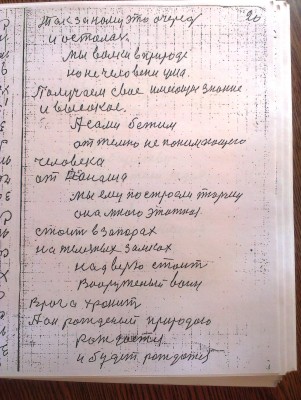 20
Так закому это очеред
и осталах.
мы волки в природе
но не человеки ума.
Получаем свое имеющее знание
и высокое.
А сами бежим
от темно не понимающего
человека
от
мы ему построели тюрму
она много этажна
стоит в запорах
на железных замках
на дверю стоит
Вооруженый воин
Врага хронит
А он рожденый природою
рождается
и будет рождатся